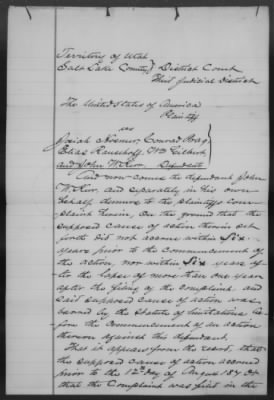 Territory of Utah
Salt Lake County } District Court
Third Judicial District
The United States of America
Plaintiff
vs
Josiah Hosmer, Conrad Prag,
Elias Ransohoff, Wm Gilbert,
and John W. Kerr. Defendants
And now comes the defendant John
W. Kerr, and separately in his own
behalf demurs to the plaintiffs com-
plaint herein, On the ground that the
supposed cause of action therein set
forth did not accrue within Six
years prior to the commencement of
the action, nor within Six years af-
ter the lapse of more than one year
after the filing of the complaint and
said supposed cause of action was
barred by the Statute of limitations be-
fore the commencement of an action
thereon against this defendant.
That it appears from the record, that
the supposed cause of action accrued
prior to the 12th day of August 1874
that the Complaint was filed in the